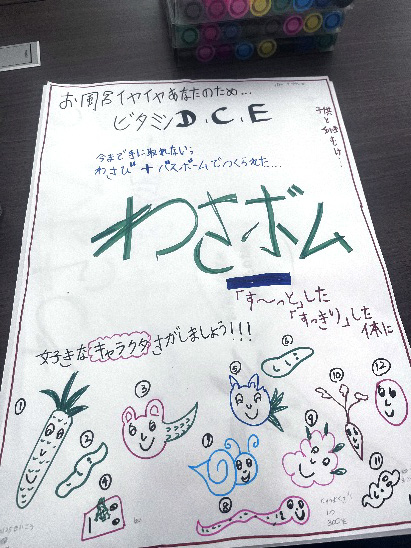 お風呂イヤイヤあなたのため...
ビタミンD,C,E
子供と
今まで手に取れない、
わさび+バスボームでつくられた...
わさボム
「す〜っと」した
「すっきり」した
体に
好きなキャラクタさがしましょう!!!
①
②
③
④
⑤
⑥
⑧
⑨
⑩
⑪
⑫